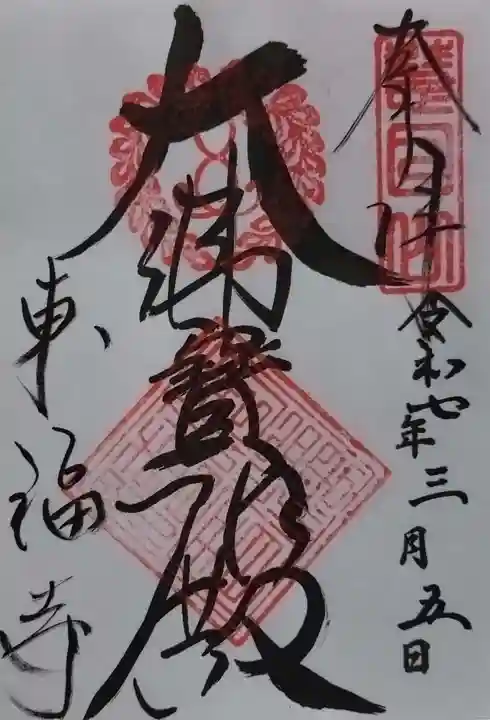 奉拝
令和七年三月五日
大佛寳殿
東福寺